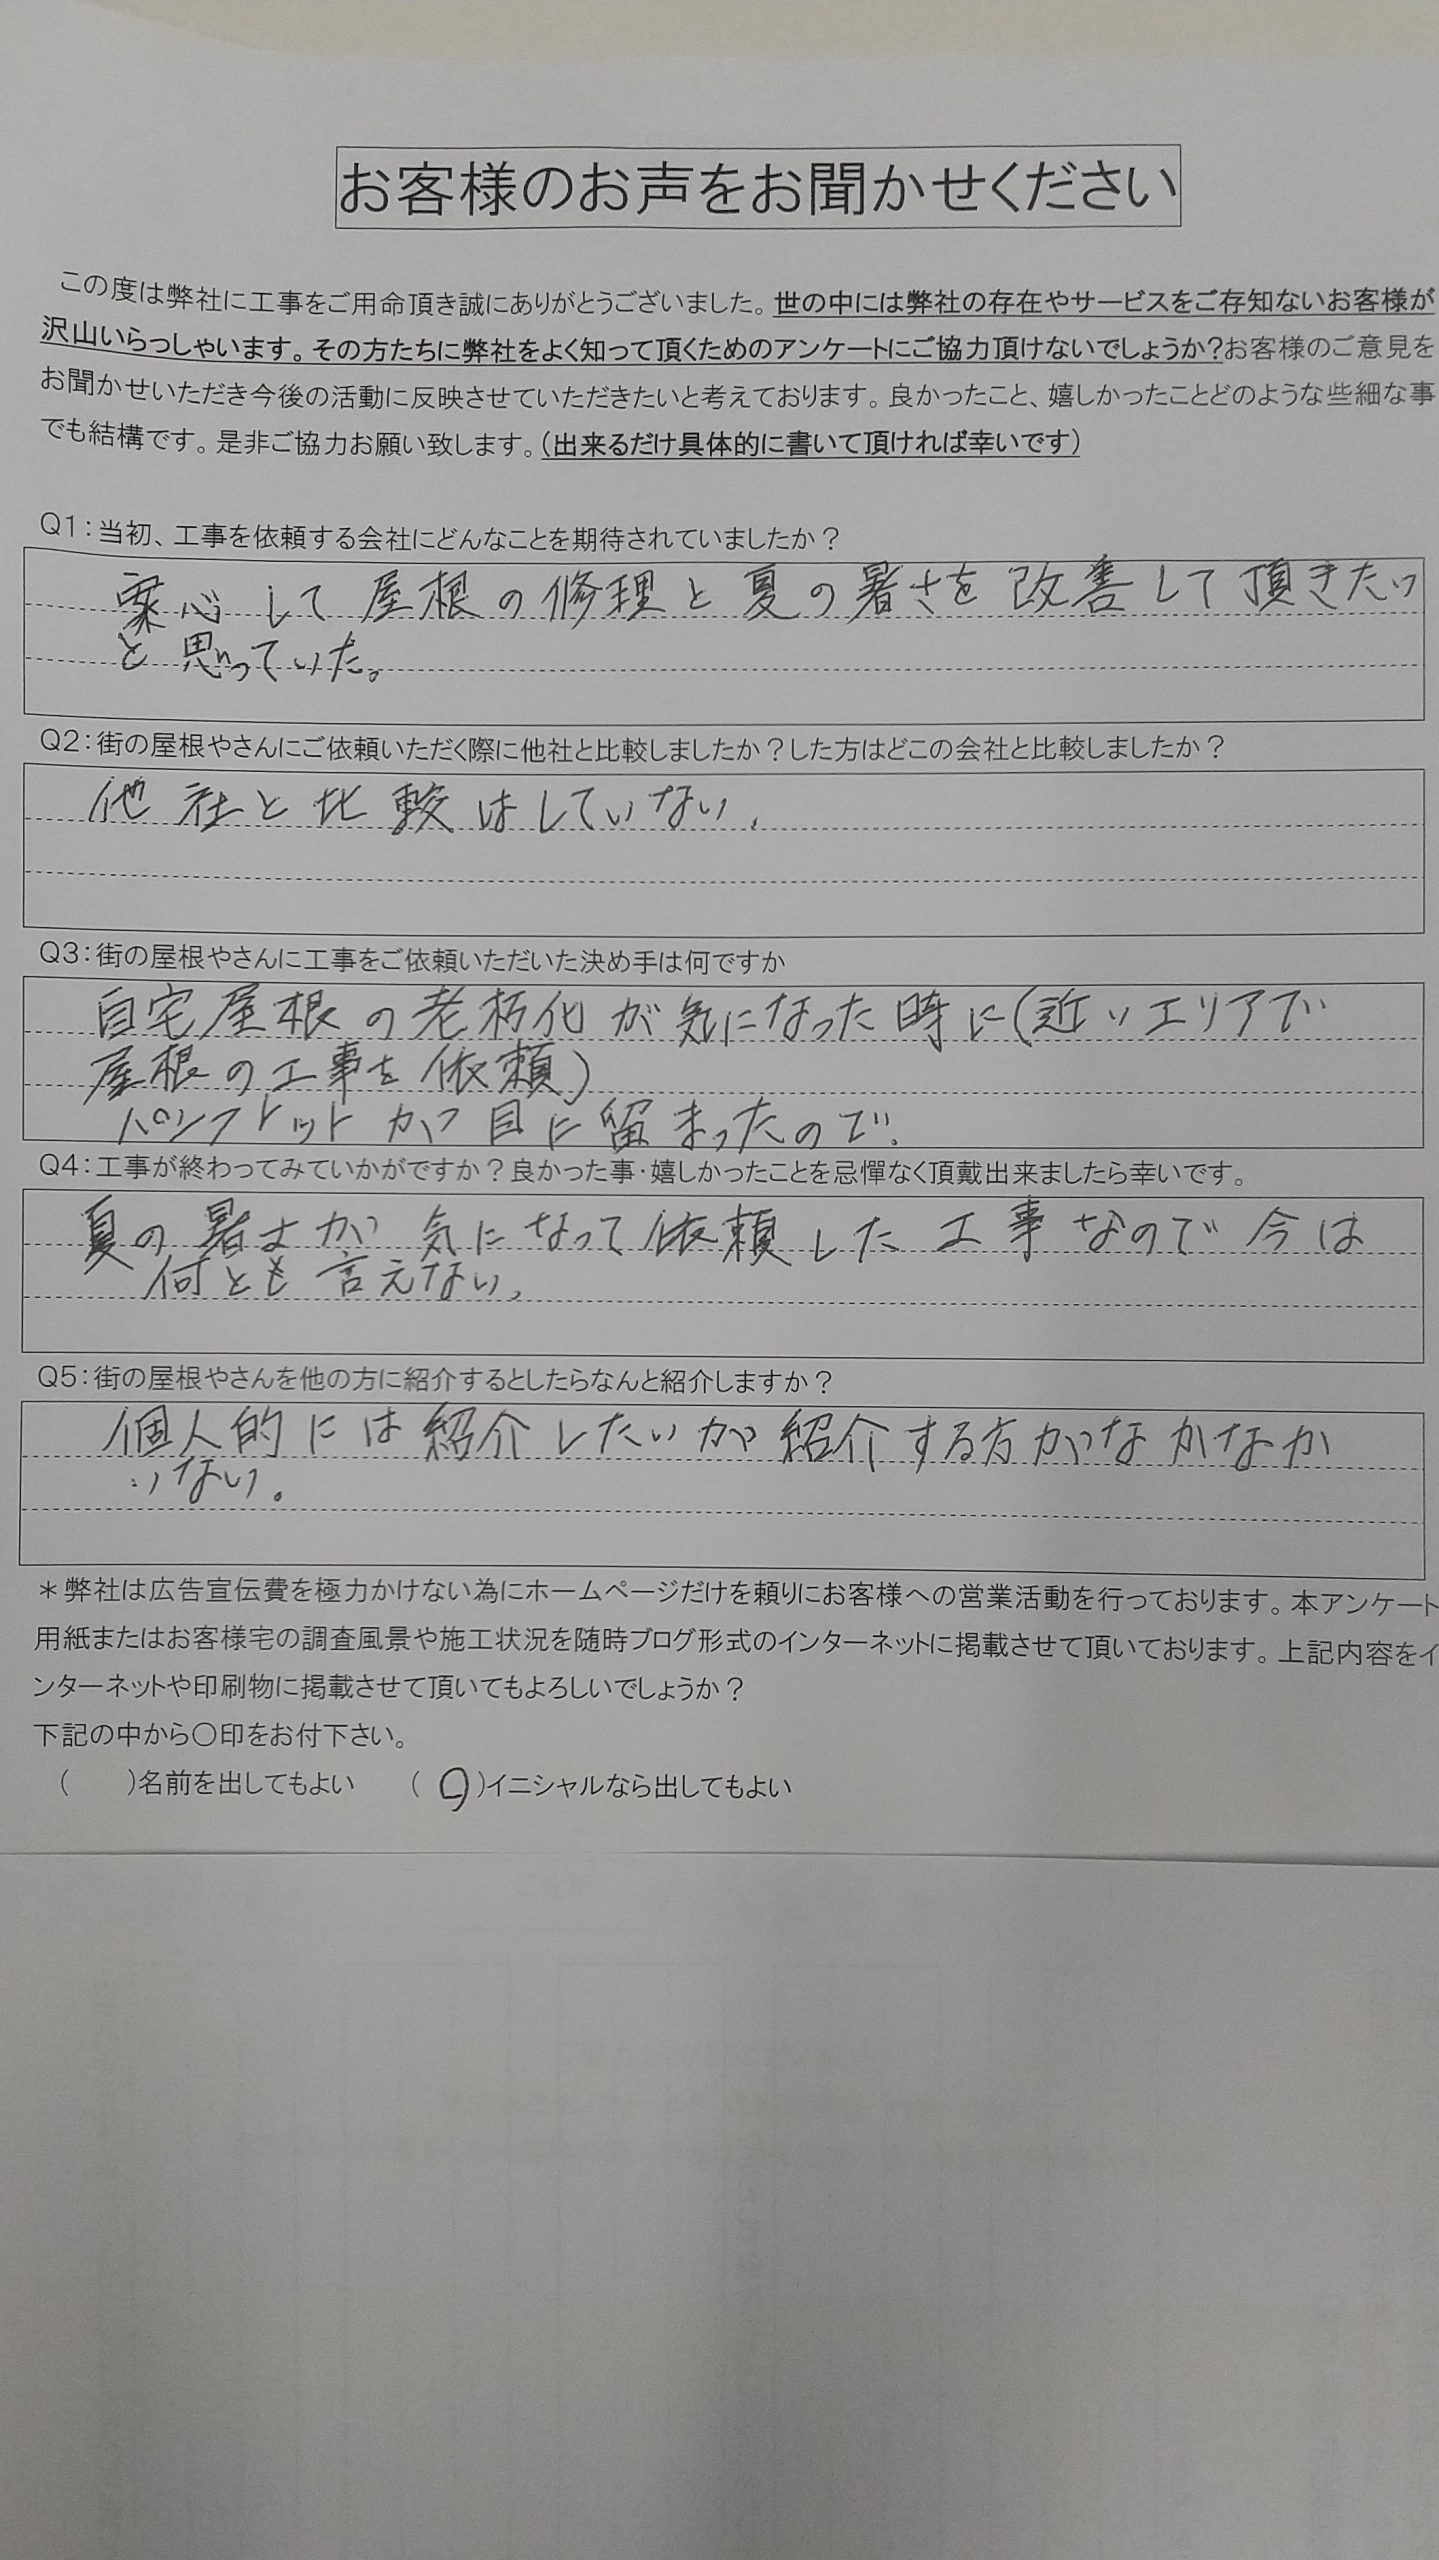 お客様のお声をお聞かせください
この度は弊社に工事をご用命頂き誠にありがとうございました。世の中には弊社の存在やサービスをご存知ないお客様が
沢山いらっしゃいます。その方たちに弊社をよく知って頂くためのアンケートにご協力頂けないでしょうか?お客様のご意見を
お聞かせいただき今後の活動に反映させていただきたいと考えております。良かったこと、嬉しかったことどのような些細な事
でも結構です。是非ご協力お願い致します。(出来るだけ具体的に書いて頂ければ幸いです)
Q1:当初、工事を依頼する会社にどんなことを期待されていましたか?
安心して屋根の修理と夏の暑さを改善して頂きたい
と思っていた。
Q2:街の屋根やさんにご依頼いただく際に他社と比較しましたか?した方はどこの会社と比較しましたか?
他社と比較はしていない.
Q3:街の屋根やさんに工事をご依頼いただいた決め手は何ですか
自宅屋根の老朽化が気になった時に(近いエリアで
屋根の工事を依頼)
パンフレットが目に留まったので.
Q4:工事が終わってみていかがですか?良かった事・嬉しかったことを忌憚なく頂戴出来ましたら幸いです。
夏の暑さが気になって依頼した工事なので今は
何とも言えない,
Q5:街の屋根やさんを他の方に紹介するとしたらなんと紹介しますか?
個人的には紹介したいが紹介する方がなかなか
いない。
*弊社は広告宣伝費を極力かけない為にホームページだけを頼りにお客様への営業活動を行っております。本アンケート
用紙またはお客様宅の調査風景や施工状況を随時ブログ形式のインターネットに掲載させて頂いております。上記内容をイ
ンターネットや印刷物に掲載させて頂いてもよろしいでしょうか?
下記の中から〇印をお付下さい。
( )名前を出してもよい (〇)イニシャルなら出してもよい